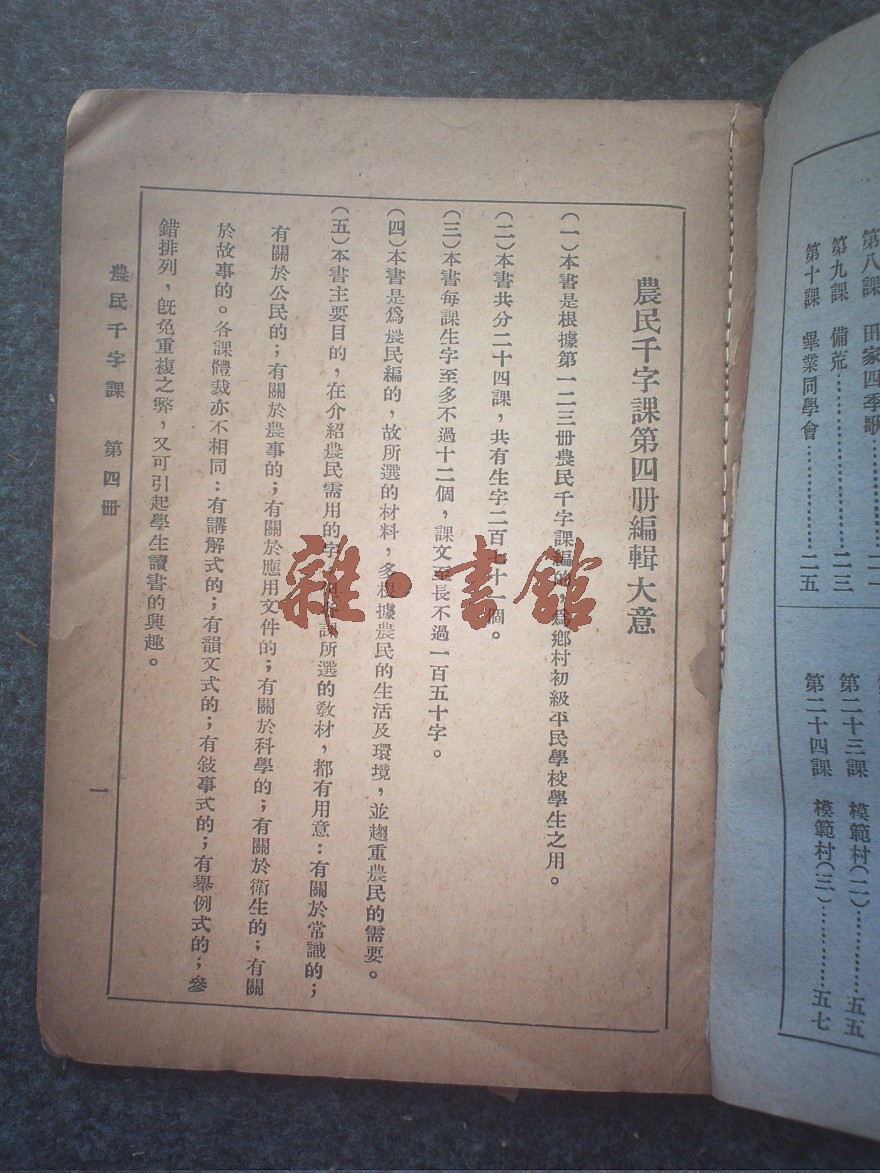 農民千字課第四册編輯大意
(一)本書是根據第一二三册農民千字課編的,爲鄉村初級平民學校學生之用。
(二)本書共分二十四課,共有生字二百七十一個。
(三)本書每課生字至多不過十二個,課文至長不過一百五十字。
(四)本書是爲農民編的,故所選的材料,多根據農民的生活及環境,並趨重農民的需要。
(五)本書主要目的,在介紹農民需用的字,課所選的敎材,都有用意:有關於常識的;
有關於公民的;有關於農事的;有關於應用文件的;有關於科學的;有關於衛生的;有關
於故事的。各課體裁亦不相同:有講解式的;有韻文式的;有敍事式的;有舉例式的;參
錯排列,旣免重複之弊,又可引起學生讀書的興趣。
農民千字課 第四册
一
雜·書館
第八課 田家四季歌…………二一
第九課 備荒…………二三
第十課 畢業同學會…………二五
第二十三課 模範村(二)…………五五
第二十四課 模範村(三)…………五七